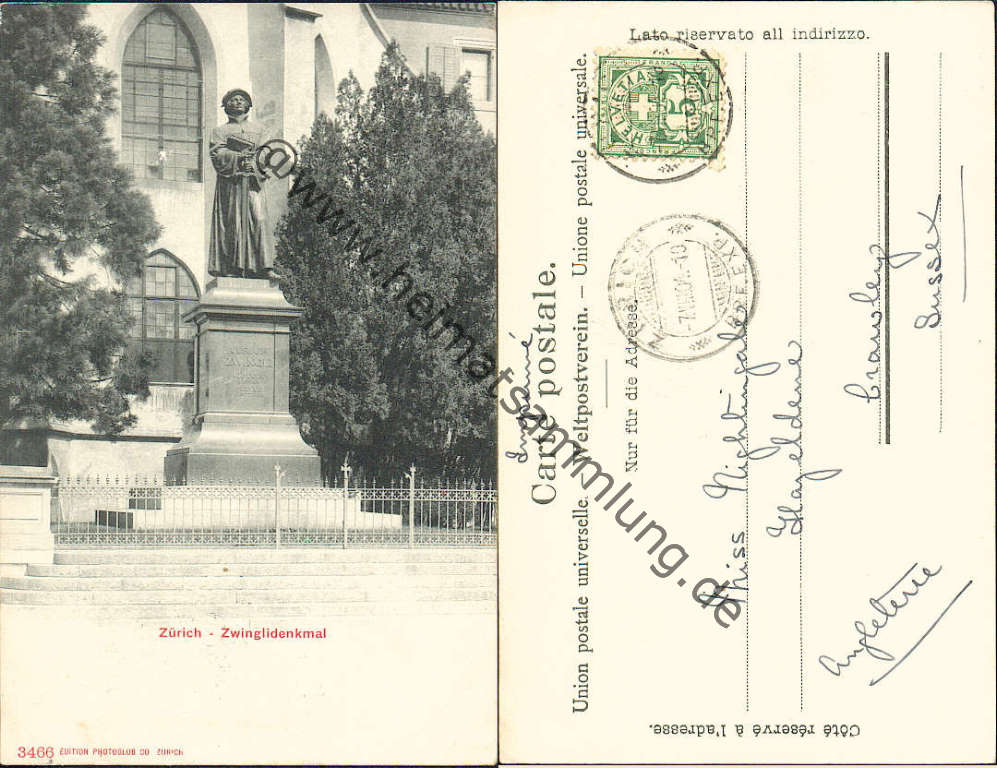 Zürich - Zwinglidenkmal
3466 EDITION PHOTOGLOB CO ZÜRICH
@www.heimatsammlung.de
Lato riservato all indirizzo.
Union postale universelle. - Weltpostverein. - Unione postale universale.
Imprimé
Carte postale.
Nur für die Adresse.
FRANCO
HELVETIA
5
BRF.EXP.
Miss Nightingale
Hazeldene
Crawley
Sussex
Angleterre
Côté réservé à l'adresse.